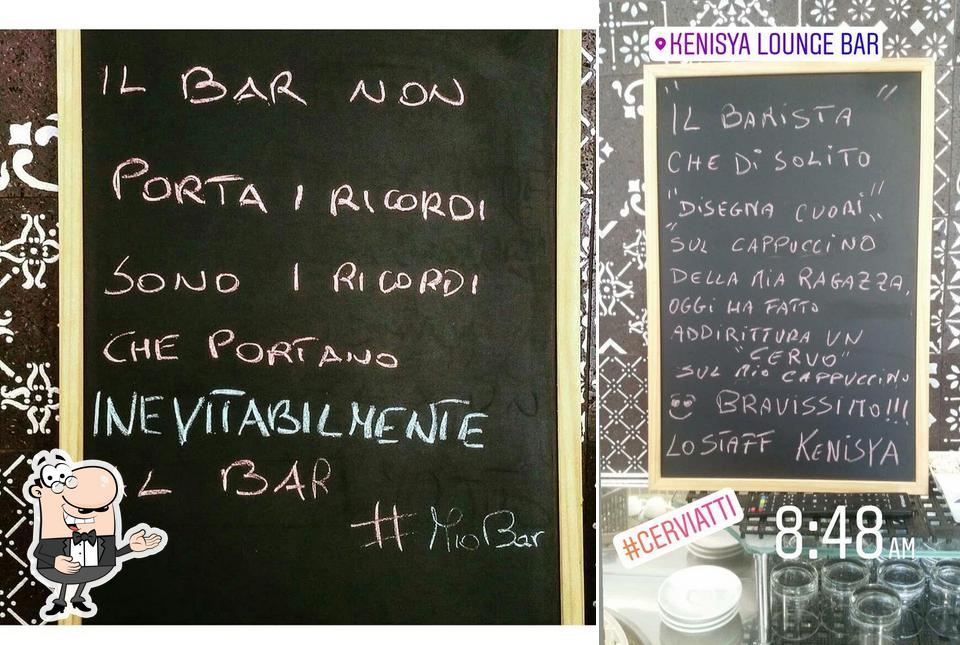 IL BAR NON
PORTA I RICORDI
SONO I RICORDI
CHE PORTANO
INEVITABILMENTE
IL BAR
# Mio Bar
KENISYA LOUNGE BAR
"IL BARISTA"
CHE Di SOLITO
"DiSEGNA CUORi"
"SUL CAPPUCCINO"
DELLA MIA RAGAZZA,
OGGi HA FATTO
ADDIRITTURA UN
"CERVO"
SUL MIO CAPPUCCINO
BRAVISSIMO!!!
LO STAFF KENISYA
#CERVIATTI
8:48 AM